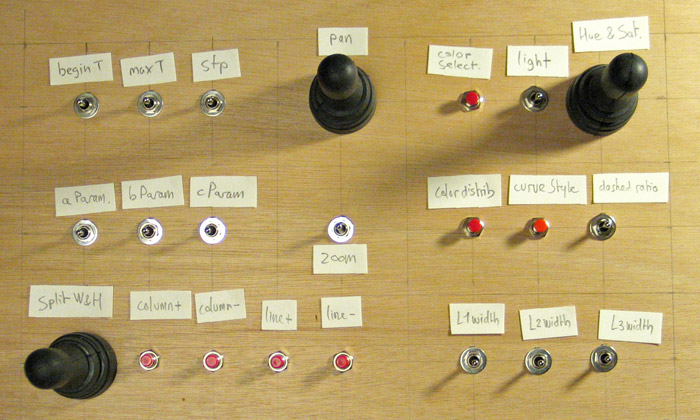 begin T
max T
stp
pan
color
select.
light
Hue & Sat.
a Param.
b Param
c Param
color distrib
curve Style
dashed ratio
Zoom
Split W&H
column+
column-
line+
line-
L1 width
L2 width
L3 width